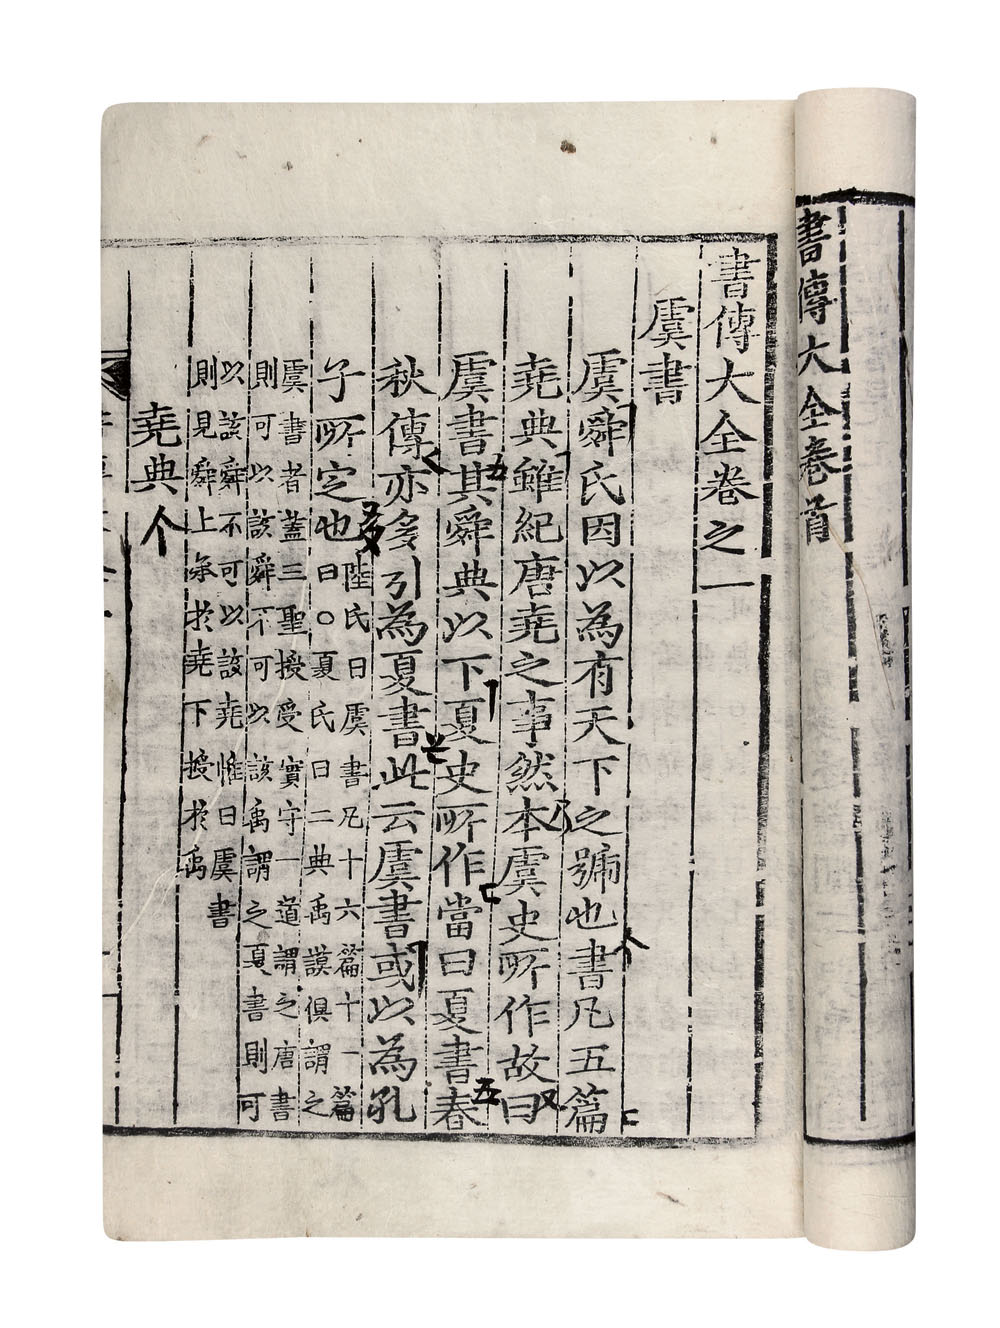 書傳大全卷首
書傳大全卷之一
虞書
虞舜氏因以為有天下之號也書凡五篇
堯典雖紀唐堯之事然本虞史所作故曰
虞書其舜典以下夏史所作當曰夏書春
秋傳亦多引為夏書此云虞書或以為孔
子所定也
陸氏曰虞書凡十六篇十一篇
曰○夏氏曰二典禹謨俱謂之
虞書者蓋三聖授受實守一道謂之唐書
則可以該舜不可以該禹謂之夏書則可
以該舜不可以該堯惟曰虞書
則見舜上承於堯下授於禹
堯典